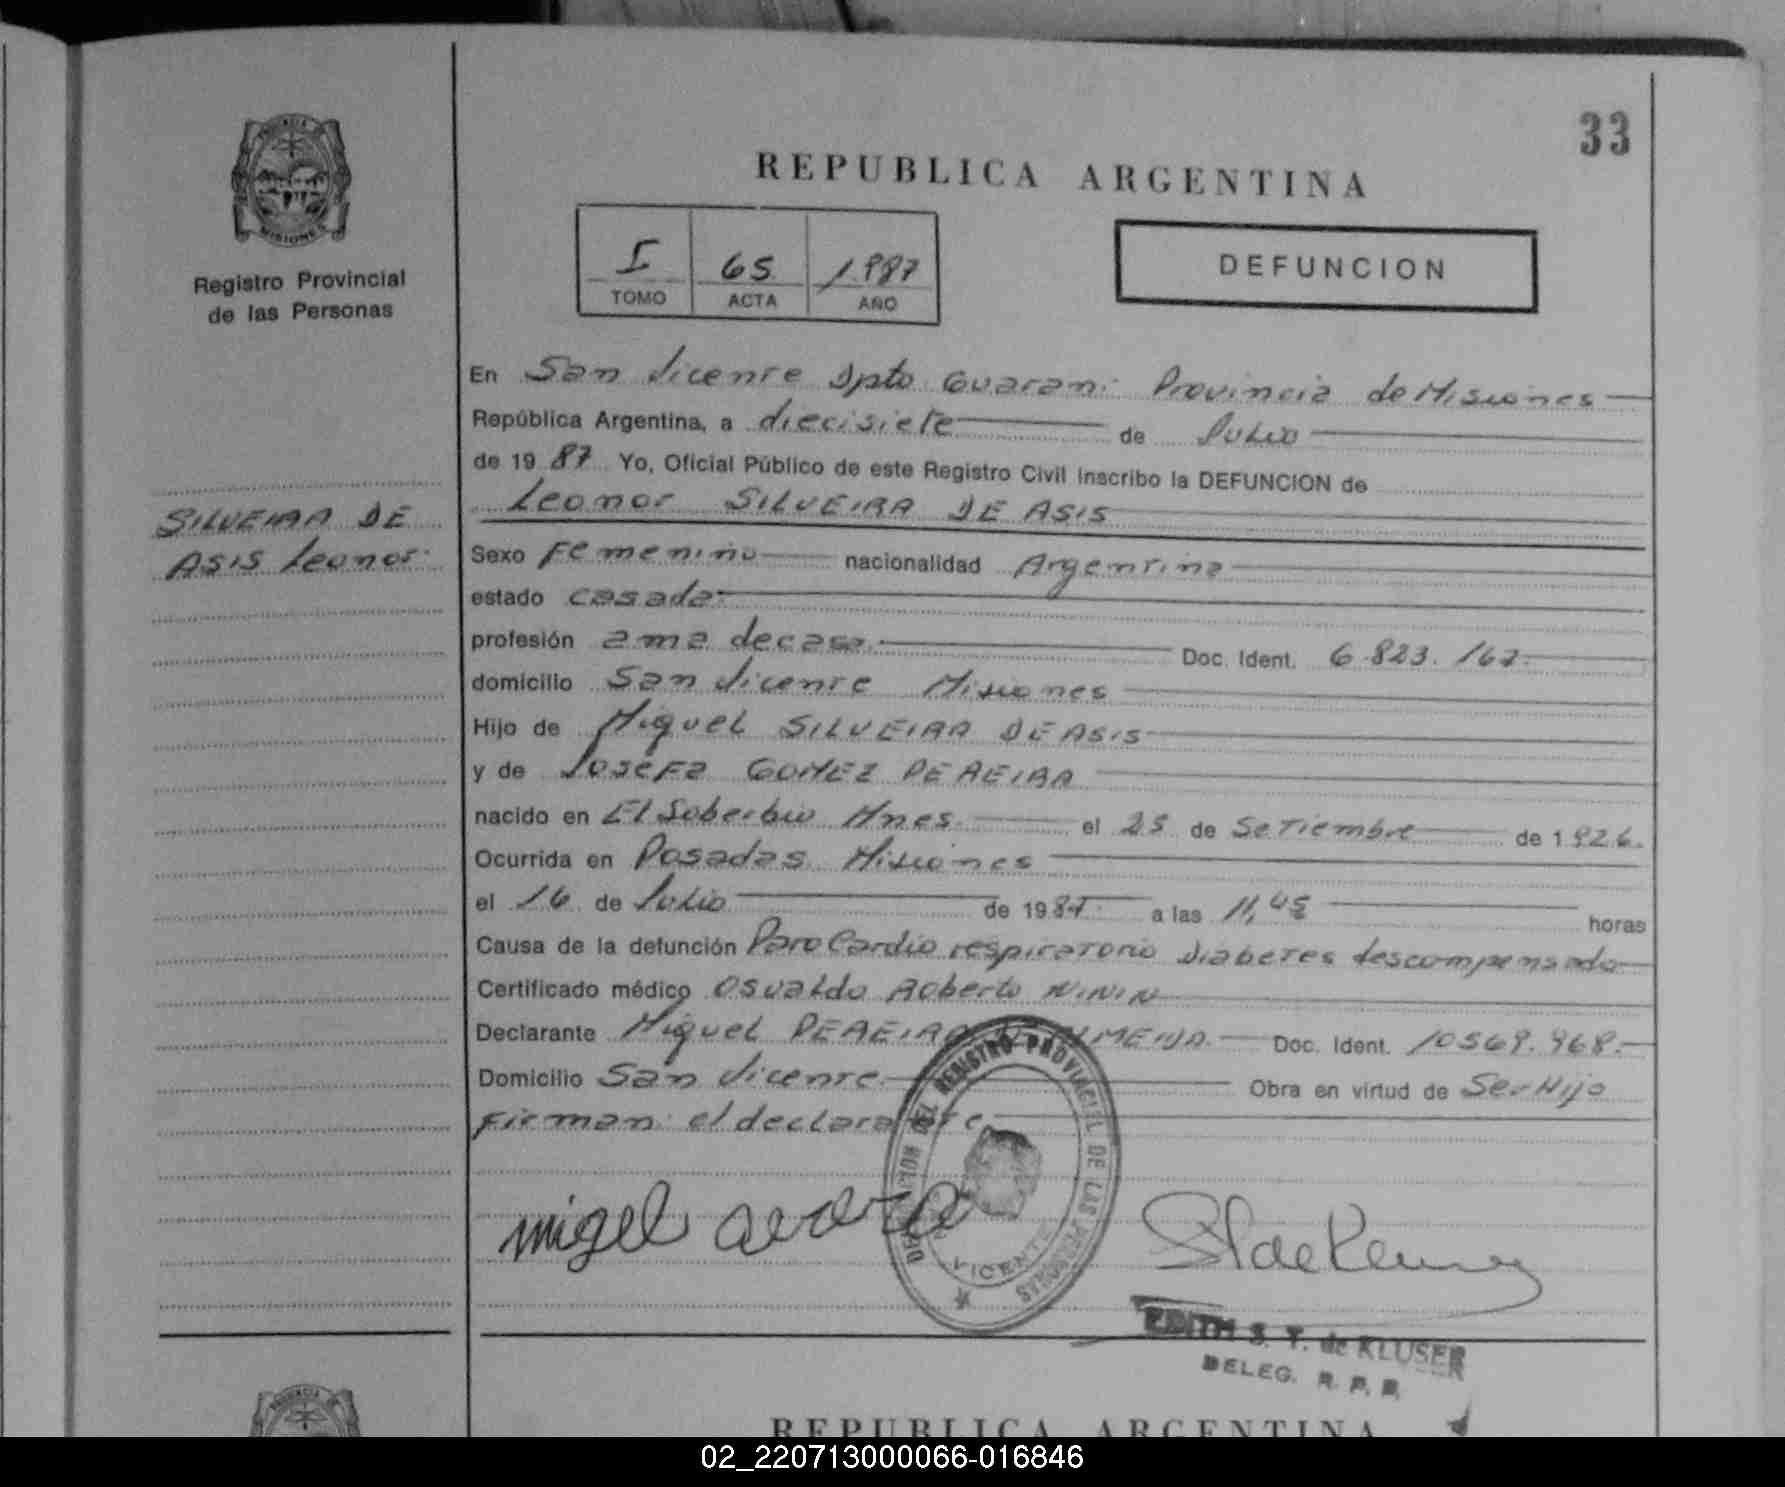 33
REPUBLICA ARGENTINA
PROVINCIA
MISIONES
Registro Provincial
de las Personas
I 65 1.987
TOMO ACTA AÑO
DEFUNCION
En San Vicente Dpto Guarani Provincia de Misiones
República Argentina, a diecisiete de Julio
de 1987 Yo, Oficial Público de este Registro Civil Inscribo la DEFUNCION de
Leonor SILVEIRA DE ASIS
SILVEIRA DE
ASIS Leonor
Sexo Femenino nacionalidad Argentina
estado casada
profesión ama de casa Doc. Ident. 6.823.162
domicilio San Vicente Misiones
Hijo de Miguel SILVEIRA DE ASIS
y de Josefa GOMEZ PEREIRA
nacido en El Soberbio Mnes. el 25 de Setiembre de 1926.
Ocurrida en Posadas Misiones
el 16 de Julio de 1987 a las 11,45 horas
Causa de la defunción Paro Cardio respiratorio Diabetes descompensada
Certificado médico Osvaldo Roberto NININ
Declarante Miguel PEREIRA DE ALMEIDA Doc. Ident. 10569.968.
Domicilio San Vicente Obra en virtud de Ser Hijo
Firman: el declarante
DEL REGISTRO PROVINCIAL DE LAS PERSONAS
VICENTE
migel
EDITH S. T. de KLUSER
DELEG. R. P. P.
REPUBLICA ARGENTINA
02_220713000066-016846